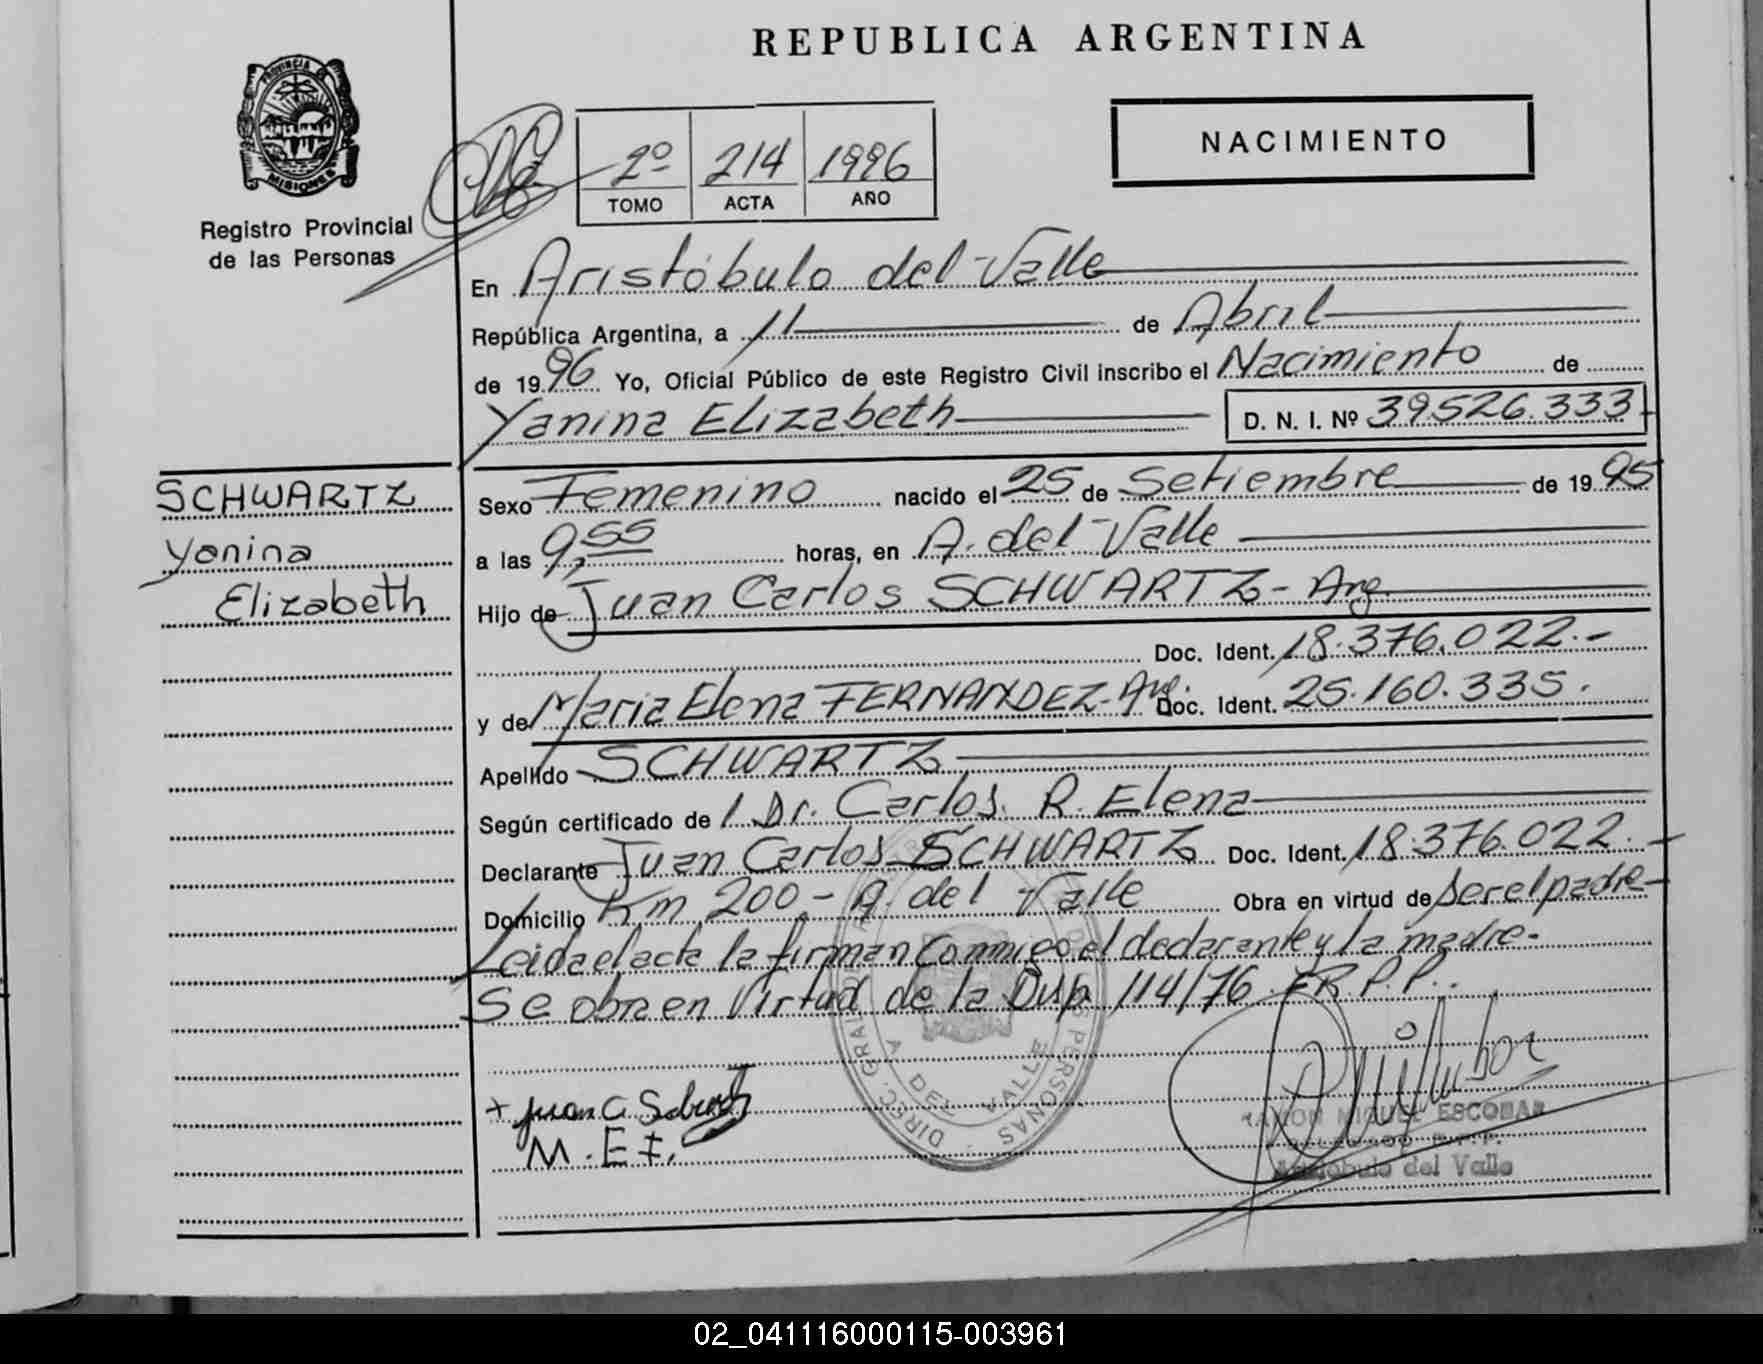 REPUBLICA ARGENTINA
PROVINCIA DE
MISIONES
Registro Provincial
de las Personas
2º 214 1996
TOMO ACTA AÑO
NACIMIENTO
En Aristóbulo del Valle
República Argentina, a 11 de Abril
de 1996 Yo, Oficial Público de este Registro Civil inscribo el Nacimiento de
Yanina Elizabeth D. N. I. Nº 39.526.333
SCHWARTZ
Yanina
Elizabeth
Sexo Femenino nacido el 25 de Setiembre de 1995
a las 9,55 horas, en A. del Valle
Hijo de Juan Carlos SCHWARTZ - Arg.
Doc. Ident. 18.376.022.-
y de Maria Elena FERNANDEZ - Arg. Doc. Ident. 25.160.335.
Apellido SCHWARTZ
Según certificado de / Dr. Carlos R. Elena
Declarante Juan Carlos SCHWARTZ Doc. Ident. 18.376.022.-
Domicilio Km 200 - A. del Valle Obra en virtud de ser el padre-
Leida el acta la firman conmigo el declarante y la madre-
Se obra en Virtud de la Disp. 114/76 R.P.P.
DIREC. GRAL. DE PERSONAS
A. DEL VALLE
+ Juan C.
M. E F.
RAMON MIGUEL ESCOBAR
Aristobulo del Valle
02_041116000115-003961